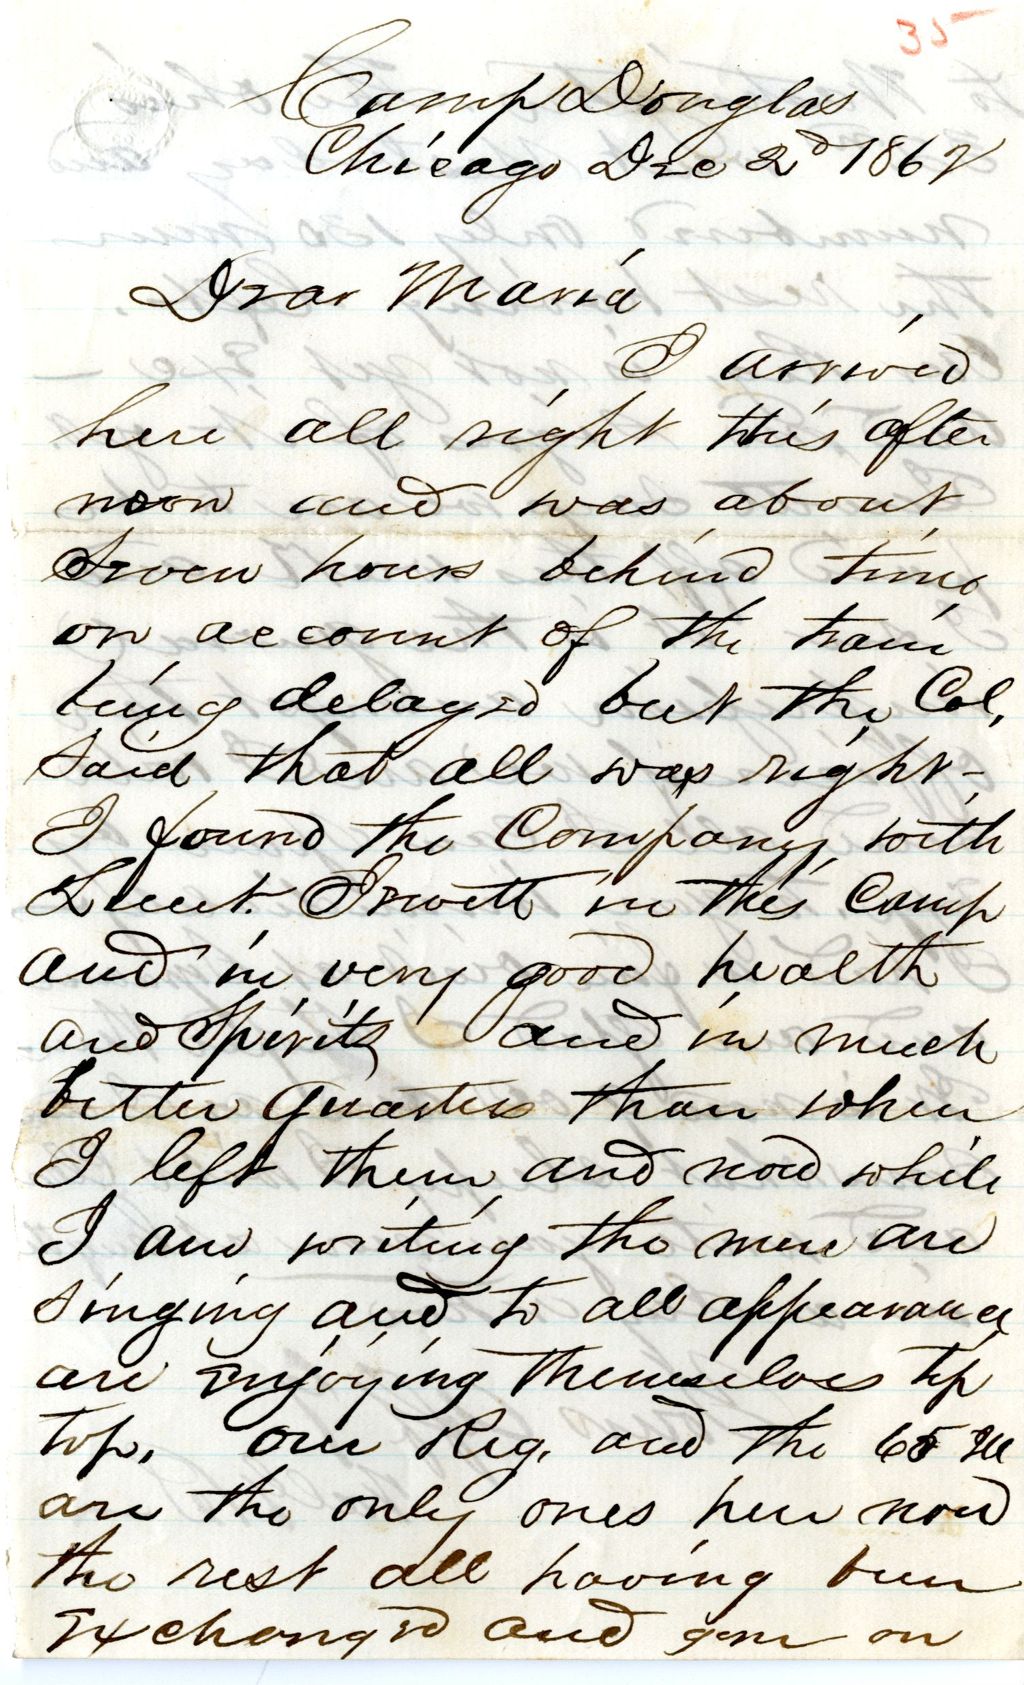 35
Camp Douglas
Chicago Dec 2d 1862
Dear Maria
I arrived
here all right this after
noon and was about
Seven hours behind time
on account of the train
being delayed but the Col,
Said that all was right-
I found the Company with
Lieut. in this Camp
and in very good health
and Spirits and in much
better Quarters than when
I left them, and now while
I am writing the men are
singing and to all appearance
are Enjoying themselves tip
top, our Reg. and the 65 Ill
are the only ones here now
the rest all having been
Exchanged and gone on